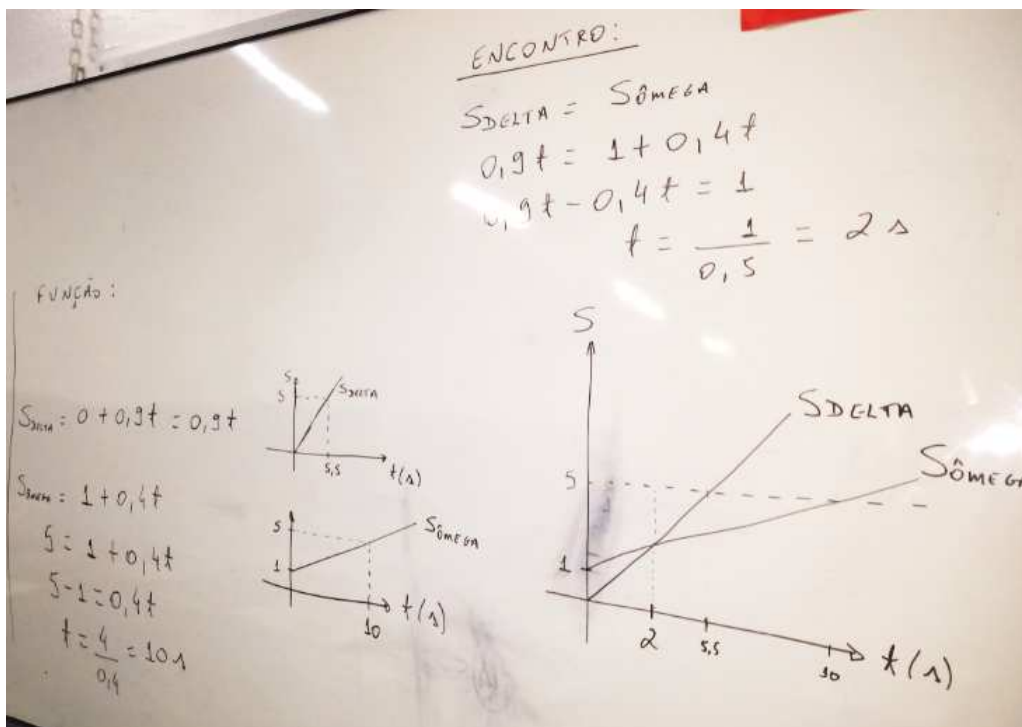 ENCONTRO:
SDELTA = SÔMEGA
0,9t = 1 + 0,4t
0,9t - 0,4t = 1
t = 1/0,5 = 2 s
FUNÇÃO:
SDELTA = 0 + 0,9t = 0,9t
S
5
SDELTA
5,5
t(s)
= 1 + 0,4t
5 = 1 + 0,4t
5 - 1 = 0,4t
t = 4/0,4 = 10 s
5
1
SÔMEGA
10
t(s)
S
5
1
SDELTA
SÔMEGA
2
5,5
10
t(s)